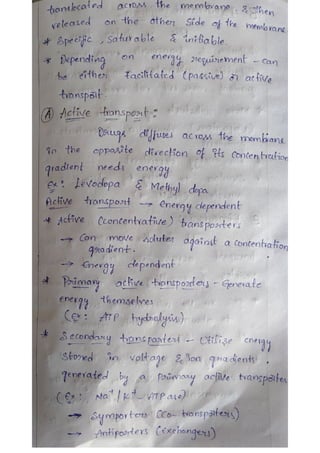 translocated across the membrane & then
released on the other side of the membrane
* Specific, Saturable & initiable
* Depending on energy requirement - can
be either Facilitated (passive) or active
transport.
Ⓐ Active transport :
Drugs diffuses across the membrane
in the opposite direction of its concentration
gradient needs energy
Ex: Levodopa & Methyl dopa
Active transport → Energy dependent
* Active (concentrative) transporters
→ Can move solutes against a concentration
gradient.
→ Energy dependent
* Primary active transporters - Generate
energy themselves
(Ex: ATP hydrolysis)
* Secondary transporters - Utilize energy
stored in voltage & Ion gradients
generated by a primary active transporter
(Ex: Na⁺/K⁺-ATPase)
→ Symporters (Co-transporters)
→ Antiporters (Exchangers)